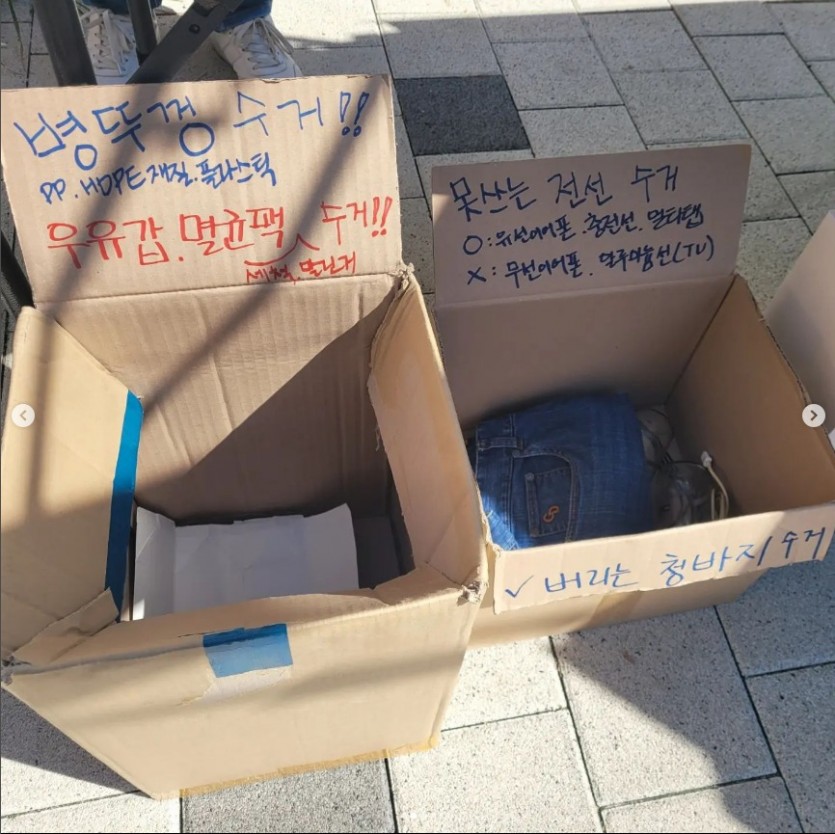 병뚜껑 수거!!
PP. HDPE재질. 플라스틱
우유갑. 멸균팩 수거!!
세척, 말린거
못쓰는 전선 수거
O: 유선이어폰. 충전선. 멀티탭
X: 무선이어폰. 알루미늄선(TV)
✓ 버리는 청바지 수거